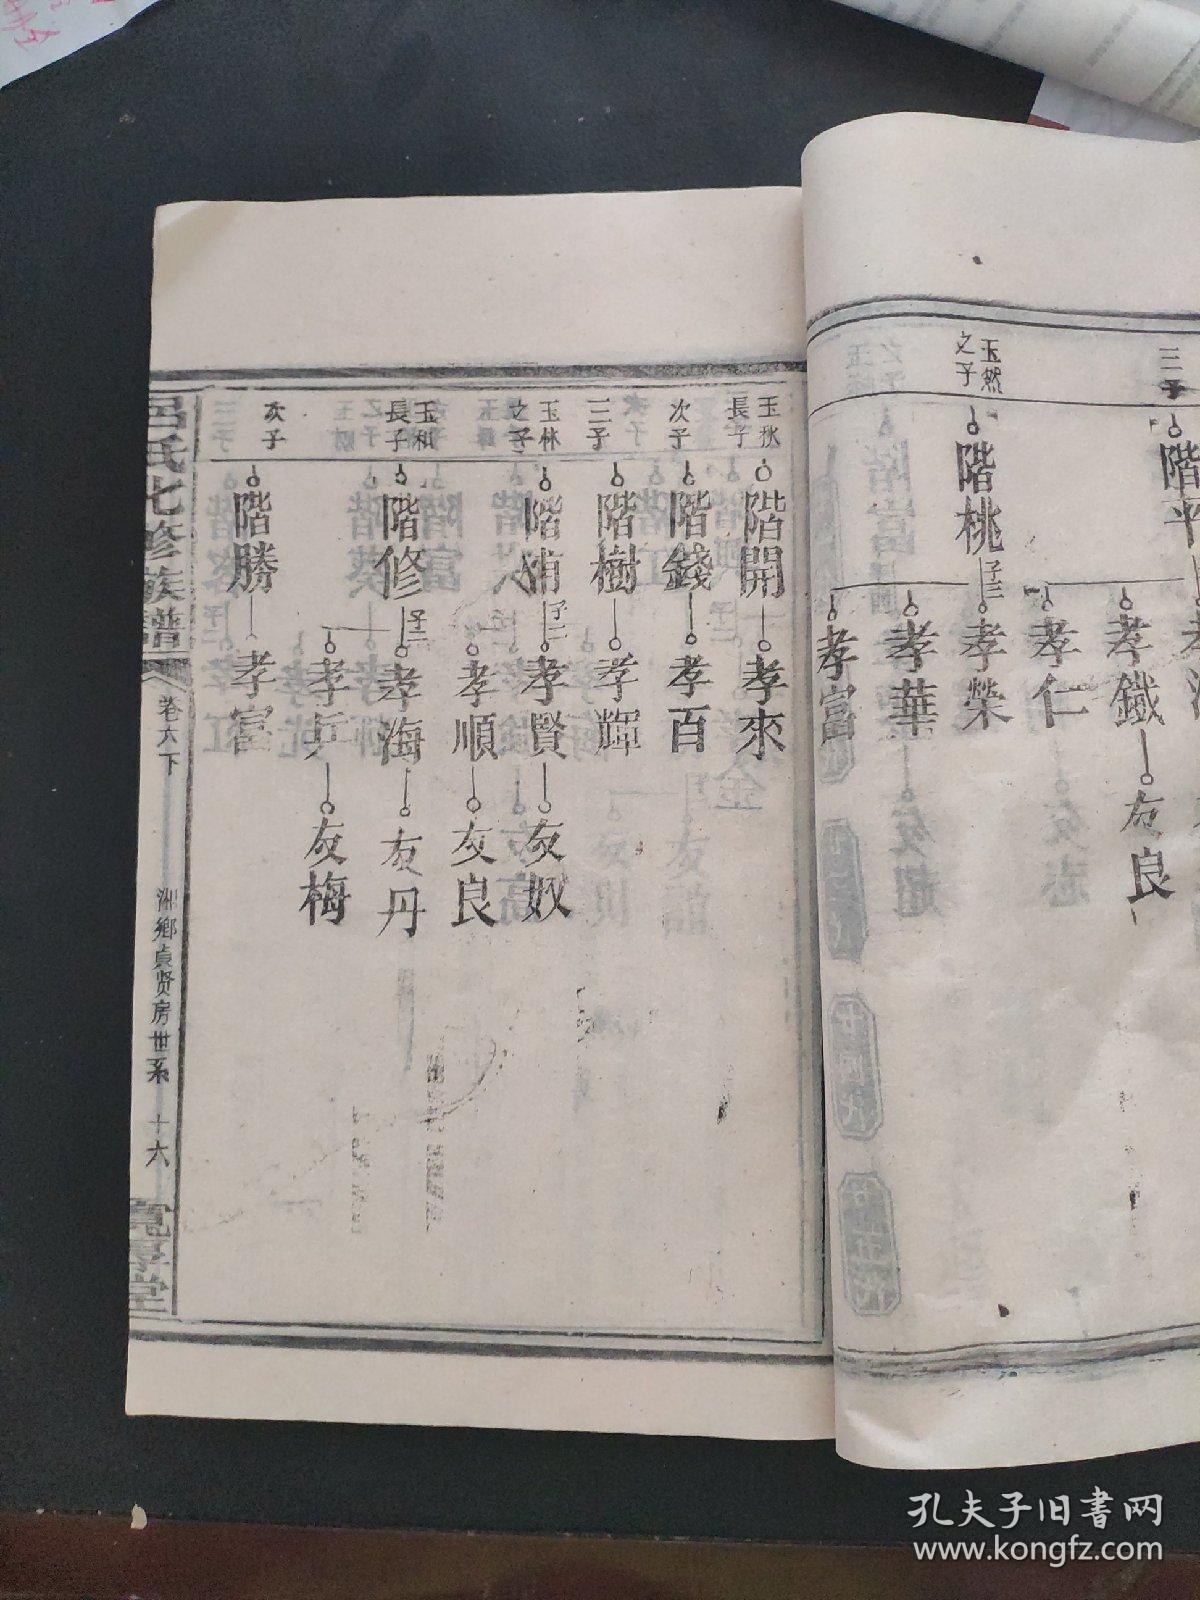 三子
階平
孝鐵
友良
孝仁
玉然
之子
階桃
子三
孝榮
孝華
孝富
玉秋
長子
階開
孝來
次子
階錢
孝百
三子
階樹
孝輝
玉林
之子
子二
孝賢
友奴
孝順
友良
玉和
長子
階修
子二
孝海
友丹
孝兵
友梅
次子
階勝
孝富
呂氏七修族譜
卷六下
湘鄉貞贤房世系
十六
寬厚堂
孔夫子旧书网
www.kongfz.com